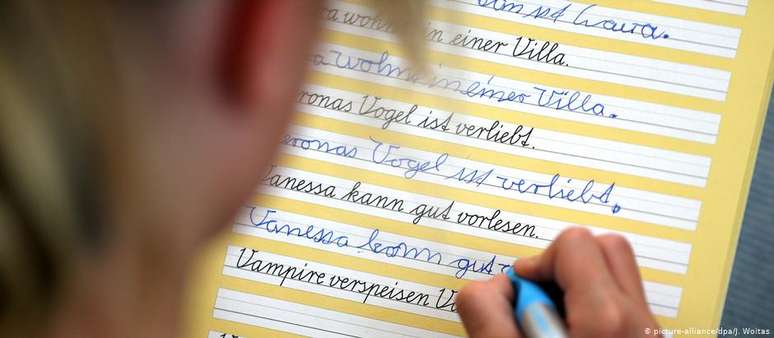 ist
in einer Villa.
wohnt in einer Villa.
ronas Vogel ist verliebt.
eronas Vogel ist verliebt.
Vanessa kann gut vorlesen.
Vanessa kann gut
Vampire verspeisen
© picture-alliance/dpa/J. Woitas